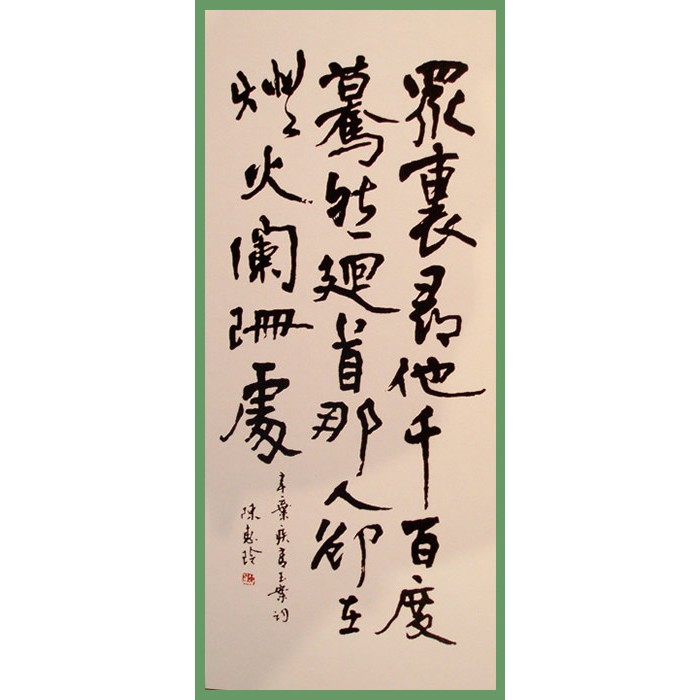 眾裏尋他千百度
驀然迴首那人卻在
燈火闌珊處
辛棄疾青玉案詞
陳惠玲